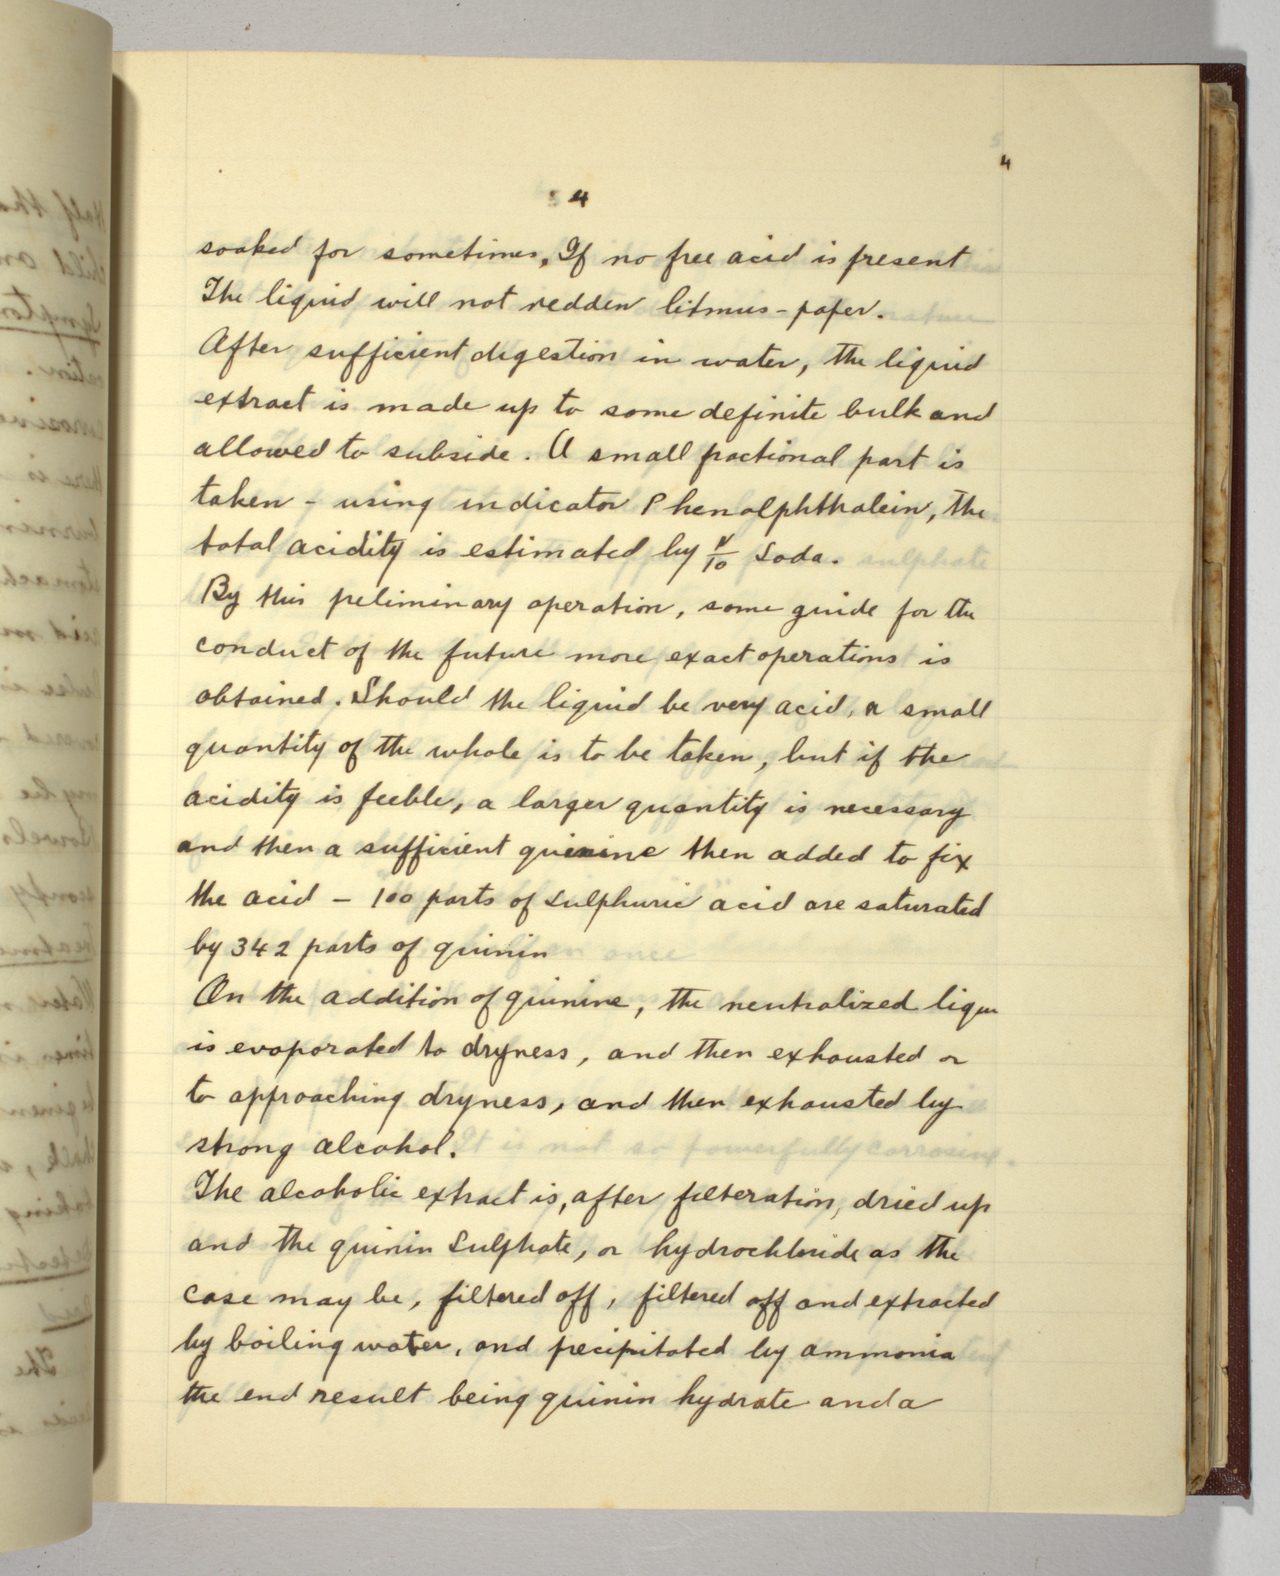 4
4
soaked for sometimes. If no free acid is present
The liquid will not redden litmus-paper.
After sufficient digestion in water, the liquid
extract is made up to some definite bulk and
allowed to subside. A small factional part is
taken - using indicator Phenolphthalein, the
total acidity is estimated by N/10 Soda.
By this preliminary operation, some guide for the
conduct of the future more exact operations is
obtained. Should the liquid be very acid, a small
quantity of the whole is to be taken, but if the
acidity is feeble, a larger quantity is necessary
and then a sufficient quinine then added to fix
the acid - 100 parts of Sulphuric acid are saturated
by 342 parts of quinin
On the addition of quinine, the neutralized liqu
is evaporated to dryness, and then exhausted or
to approaching dryness, and then exhausted by
strong alcohol.
The alcoholic extract is, after filteration, dried up
and the quinin Sulphate, or hydrochloride as the
case may be, filtered off, filtered off and extracted
by boiling water, and precipitated by ammonia
the end result being quinin hydrate and a